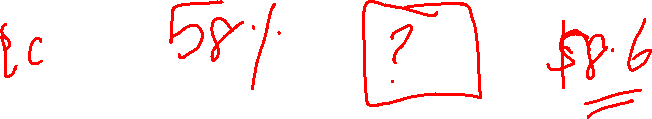 58% ? $8.6